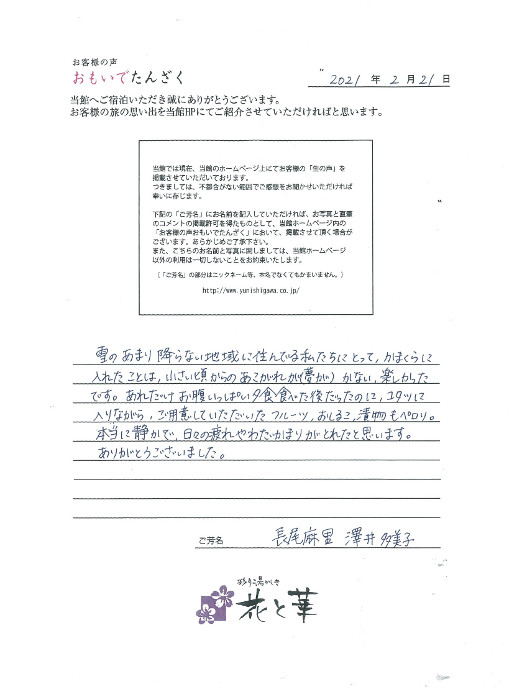 お客様の声
おもいでたんざく
2021 年 2 月 21 日
当館へご宿泊いただき誠にありがとうございます。
お客様の旅の思い出を当館HPにてご紹介させていただければと思います。
当館では現在、当館のホームページ上にてお客様の「生の声」を
掲載させていただいております。
つきましては、不都合がない範囲でご感想をお聞かせいただければ
幸いに存じます。
下記の「ご芳名」にお名前を記入していただければ、お写真と直筆
のコメントの掲載許可を得たものとして、当館ホームページ内の
「お客様の声おもいでたんざく」において、掲載させて頂く場合が
ございます。あらかじめご了承下さい。
また、こちらのお名前と写真に関しましては、当館ホームページ
以外の利用は一切しないことをお約束いたします。
(「ご芳名」の部分はニックネーム等、本名でなくてもかまいません。)
http://www.yunishigawa.co.jp/
雪のあまり降らない地域に住んでいる私たちにとって、かまくらに
入れたことは、小さい頃からのあこがれが(夢が)かない、楽しかった
です。あれだけお腹いっぱい夕食食べた後だったのに、コタツに
入りながら、ご用意していただいたフルーツ、おしるこ、漬物もペロリ。
本当に静かで、日々の疲れやわだかまりがとれたと思います。
ありがとうございました。
ご芳名 長尾麻里 澤井多美子
花と華